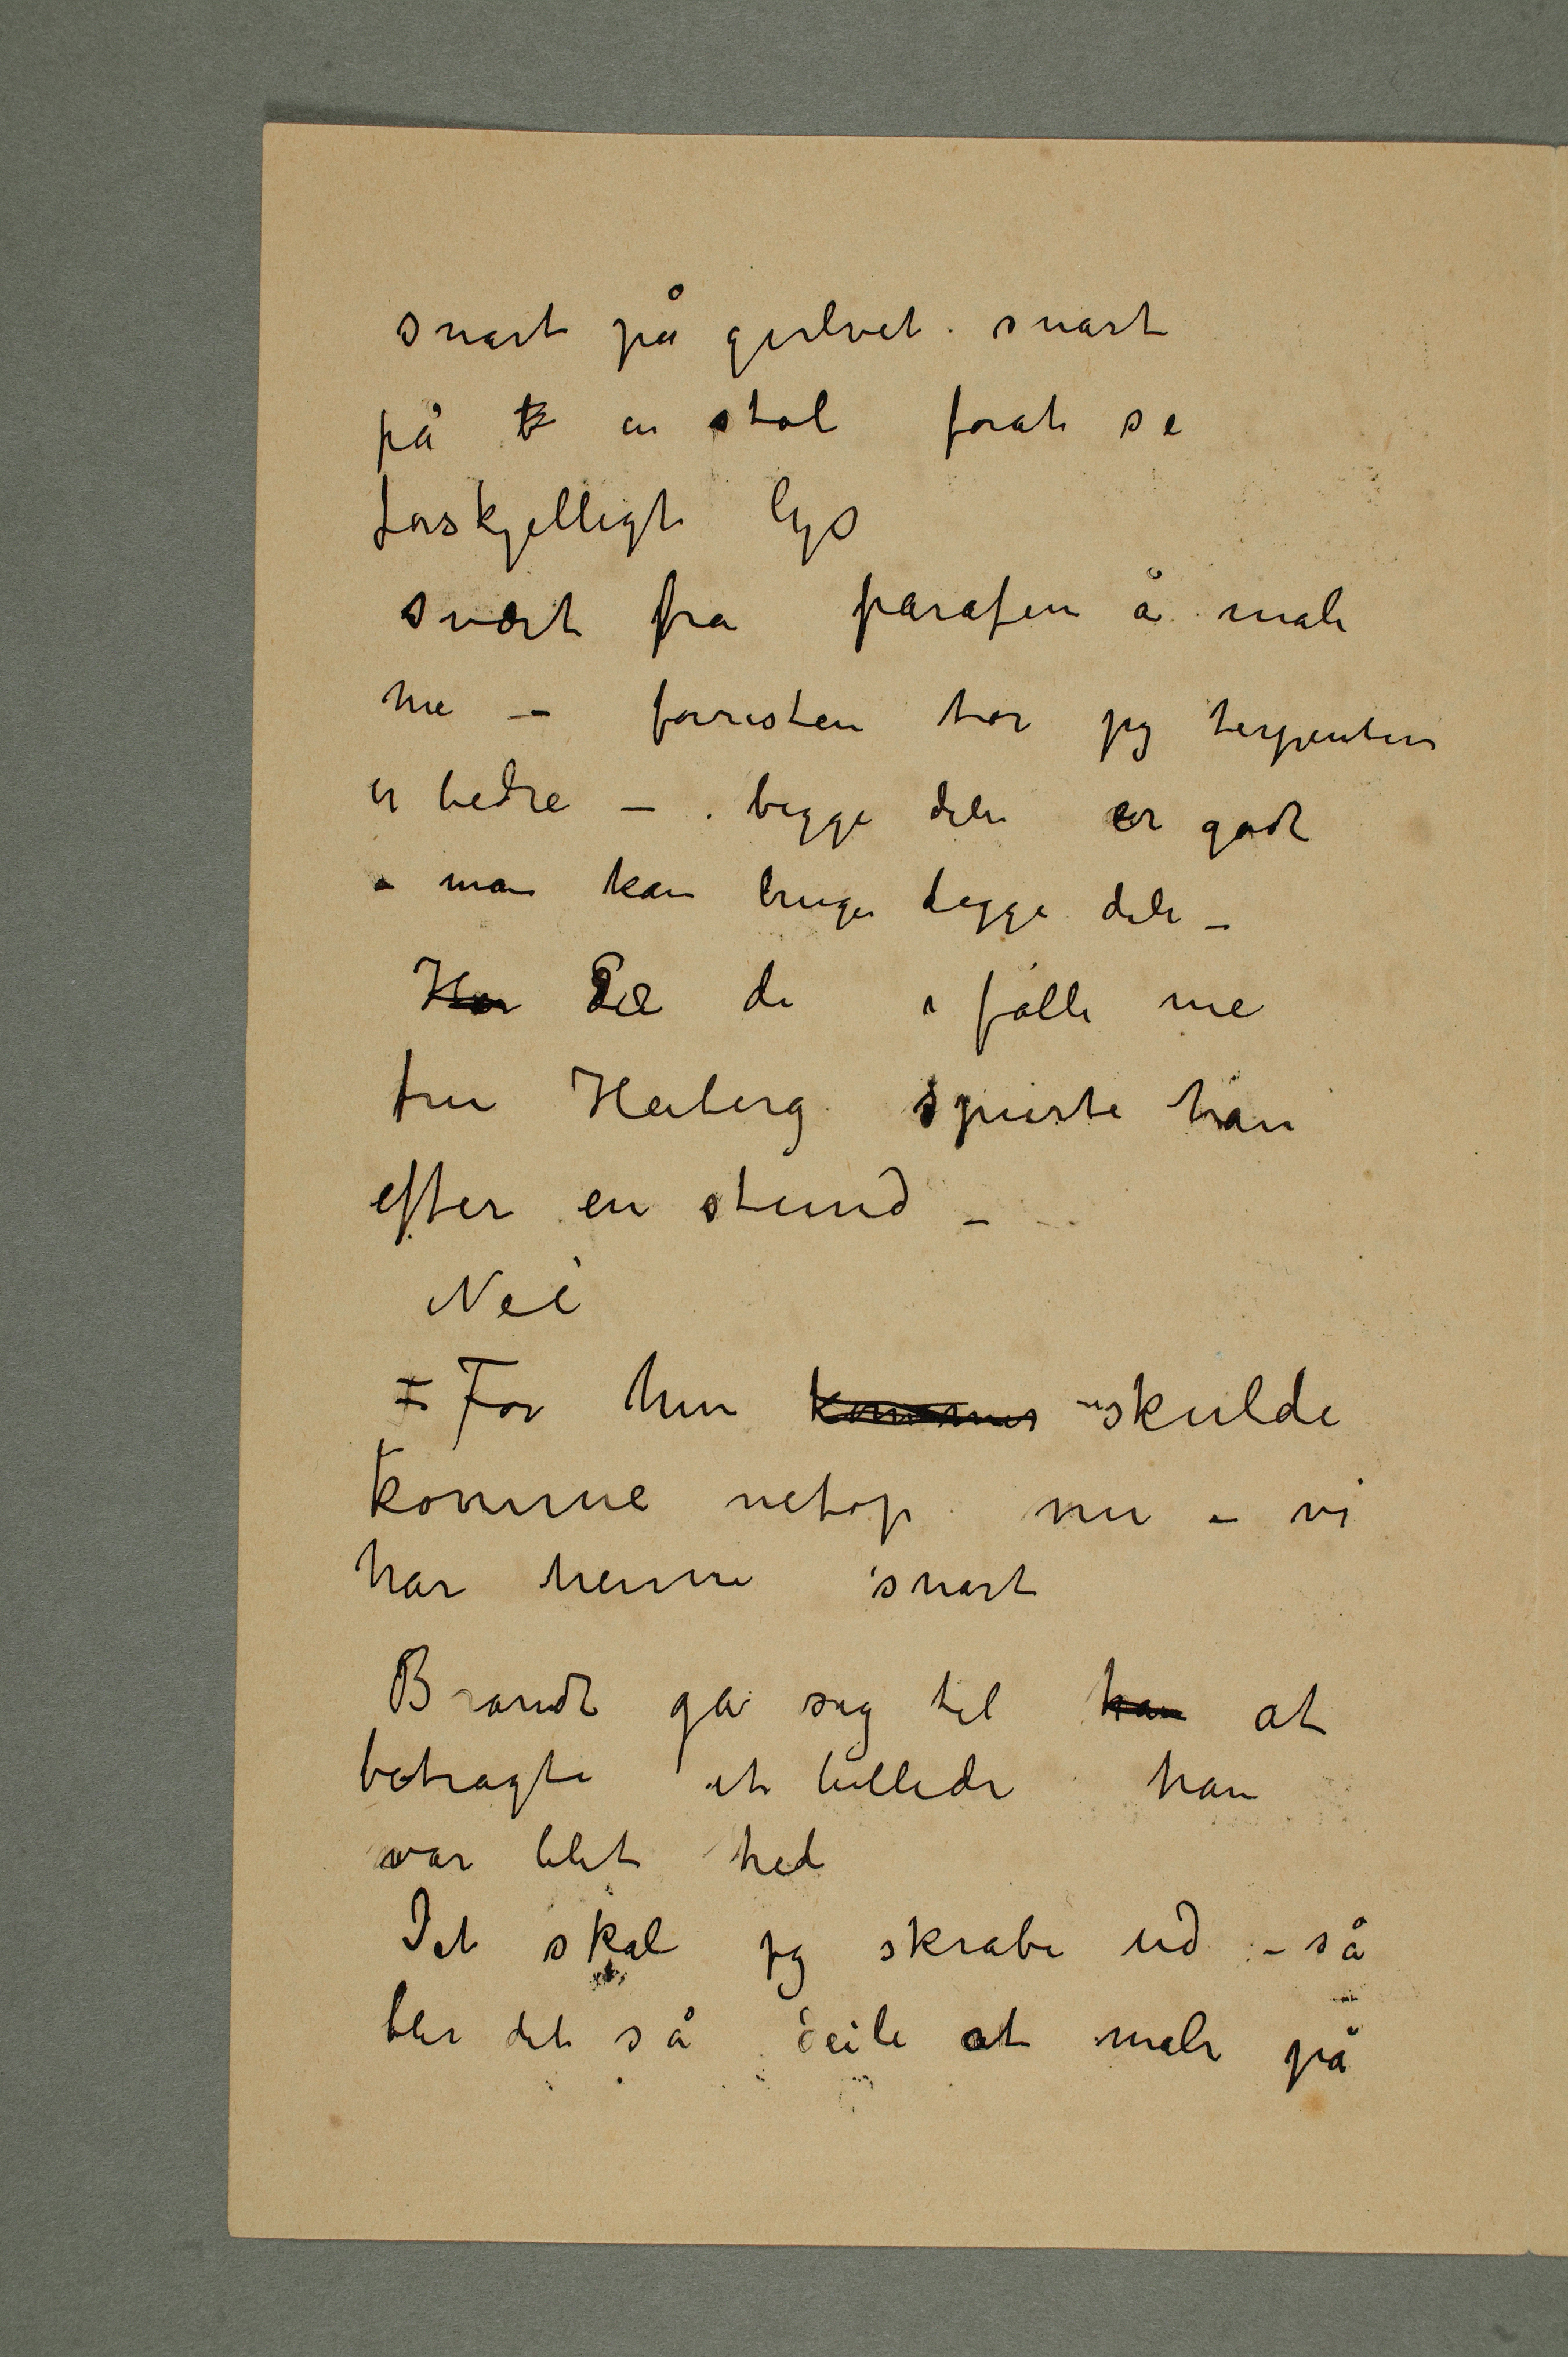 snart på gulvet snart
på en stol forat se
forskjelligt lys
svært fra parafin å male
me – forresten tror jeg terpentin
er bedre – begge dele er godt
– man kan bruge begge dele –
Har de i følle me
fru Heiberg spurte han
efter en stund –
Nei
– For hun kommer skulde
komme netop nu – vi
har henne snart
Brandt ga sig til han at
betragte et billede han
var blet ked
Det skal jeg skrabe ud – så
blir det så deile at male på